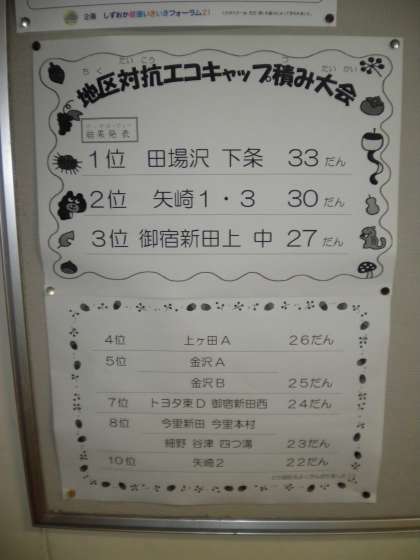 企画 しずおか健康いきいきフォーラム21
ちく たいこう つ たいかい
地区対抗エコキャップ積み大会
結果発表
1位 田場沢 下条 33だん
2位 矢崎1・3 30だん
3位 御宿新田上 中 27だん
4位 上ヶ田A 26だん
5位 金沢A
金沢B 25だん
7位 トヨタ東D 御宿新田西 24だん
8位 今里新田 今里本村
細野 谷津 四つ溝 23だん
10位 矢崎2 22だん